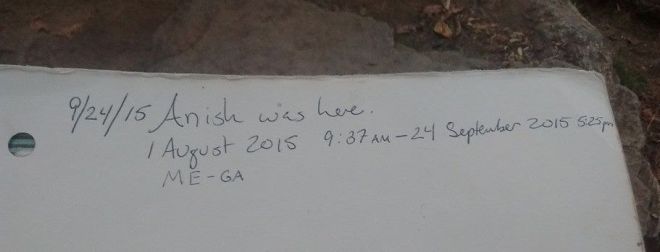 9/24/15 Anish was here.
1 August 2015 9:37 AM - 24 September 2015 5:25 pm
ME-GA